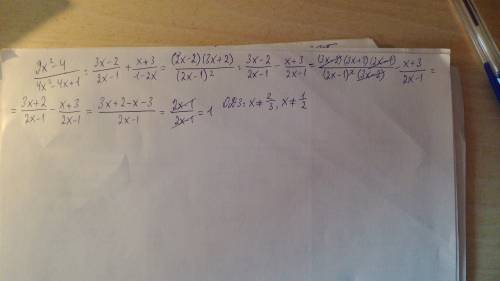 9x²-4/4x²-4x+1 : 3x-2/2x-1 + x+3/1-2x = (2x-2)(3x+2)/(2x-1)² : 3x-2/2x-1 - x+3/2x-1 = (3x-2)(3x+2)(2x-1)/(2x-1)²(3x-2) - x+3/2x-1 =
= 3x+2/2x-1 - x+3/2x-1 = 3x+2-x-3/2x-1 = 2x-1/2x-1 = 1 ОДЗ: x≠2/3, x≠1/2